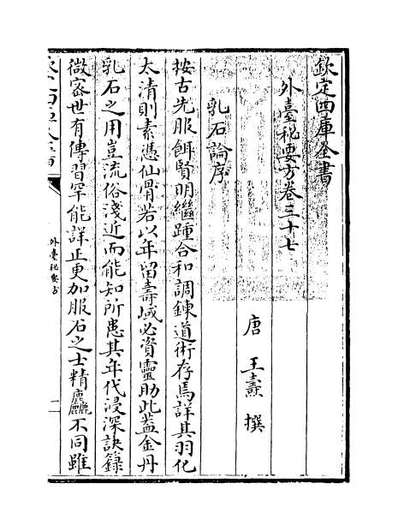 欽定四庫全書
外臺秘要方卷三十七
唐 王燾 撰
乳石論序
按古先服餌賢明繼踵合和調鍊道術存焉詳其羽化
太清則素憑仙骨若以年留壽域必資靈助此蓋金丹
乳石之用豈流俗淺近而能知所患其年代浸深訣籙
微密世有傳習罕能詳正更加服石之士精麤不同雖
外臺秘要方